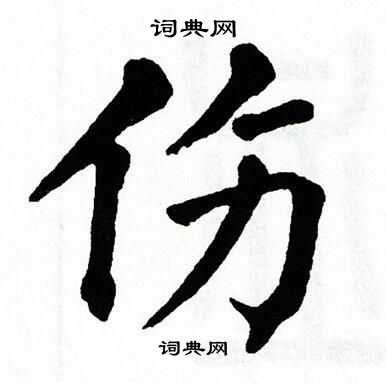 词典网
伤
词典网